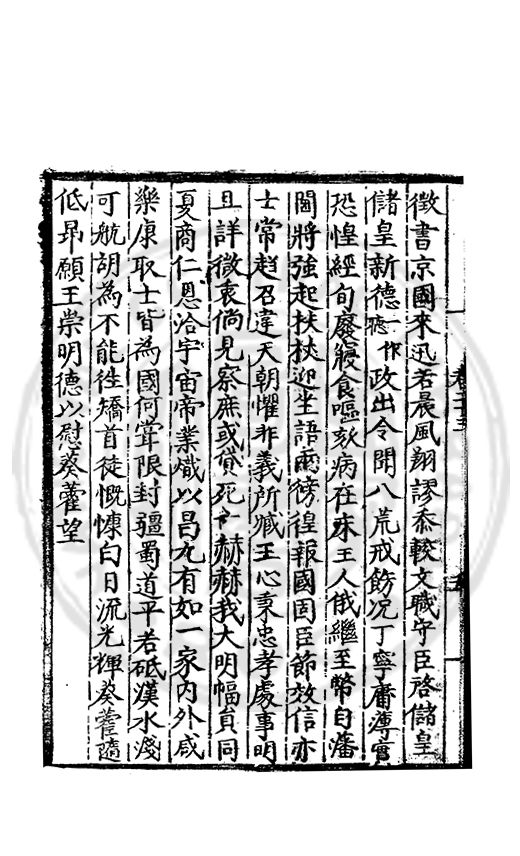 徵書京國來迅若晨風翔謬忝較文職守臣啓儲皇
儲皇新德聽一作政出令聞八荒戒飭况丁寧膚薄實
恐惶經旬廢寢食嘔欬病在床王人俄繼至幣自藩
閫將強起扶掖迎坐語兩徬徨報國固臣節效信亦
士常趍召違天朝懼非義所臧王心秉忠孝處事明
且詳微衷倘見察庶或貸死亡赫赫我大明幅員同
夏商仁恩洽宇宙帝業熾以昌九有如一家內外咸
樂康取士皆為國何甞限封疆蜀道平若砥漢水淺
可航胡為不能徃矯首徒慨慷白日流光輝葵藿隨
低昂願王崇明德以慰葵藿望
卷二十五